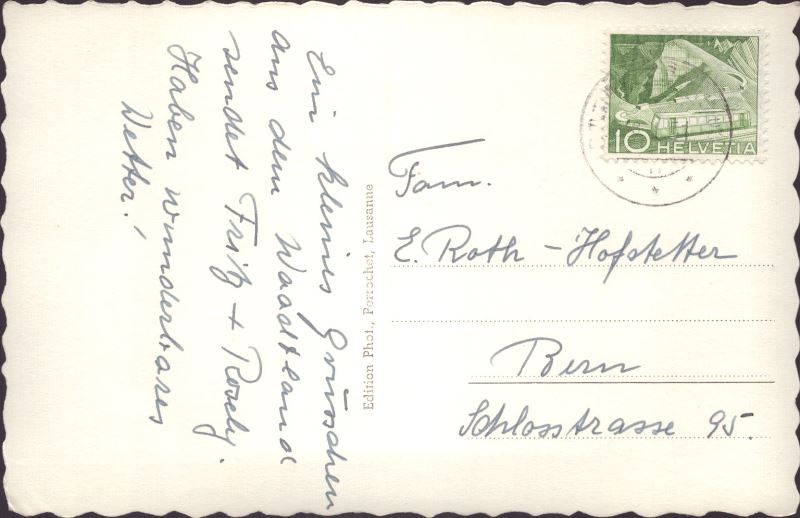 Ein kleines Grüsschen
aus dem Waadtland
sendet Fritz + Rosely.
Haben wunderbares
Wetter!
Edition Phot., Perrochet, Lausanne
10 HELVETIA
Fam.
E. Roth - Hofstetter
Bern
Schlosstrasse 95.